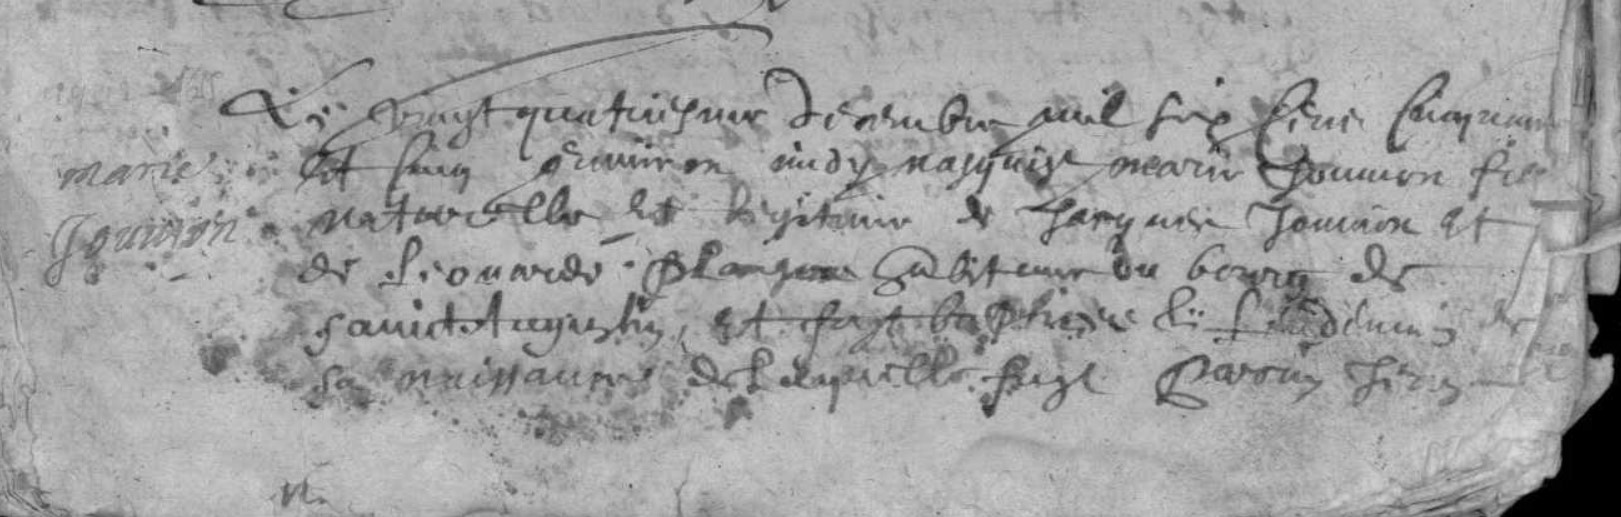 Le vingt quatriesme décembre mil six cens cinquante
marie et cinq environ midy nasquist marie Jouvion fille
Jouvion naturelle et légitime de Jacques Jouvion et
de Leonarde habitans du bourg de
sainct Augustin, et fust baptisée le lendemain de
sa naissance de laquelle fust parrin